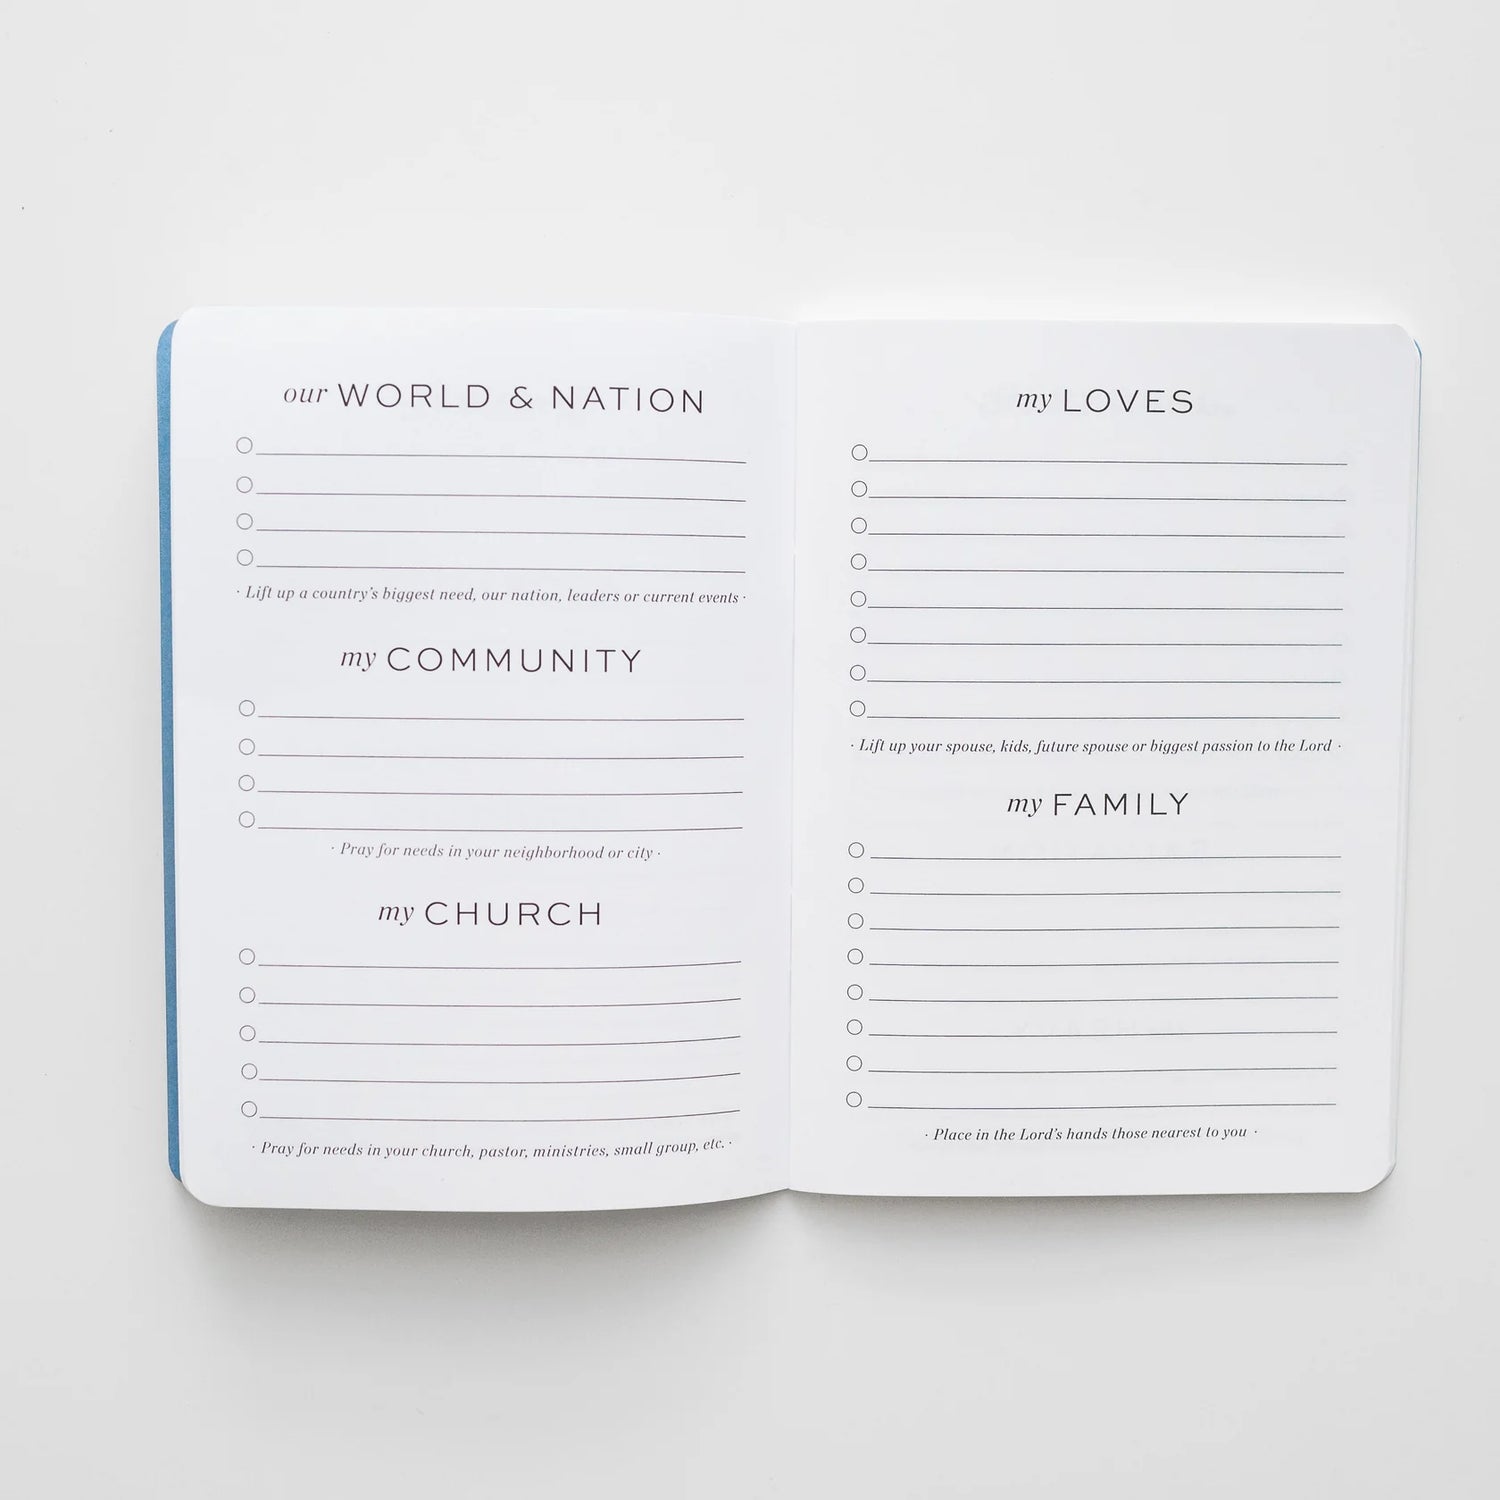 our WORLD & NATION
· Lift up a country's biggest need, our nation, leaders or current events ·
my COMMUNITY
· Pray for needs in your neighborhood or city ·
my CHURCH
· Pray for needs in your church, pastor, ministries, small group, etc. ·
my LOVES
· Lift up your spouse, kids, future spouse or biggest passion to the Lord ·
my FAMILY
· Place in the Lord's hands those nearest to you ·